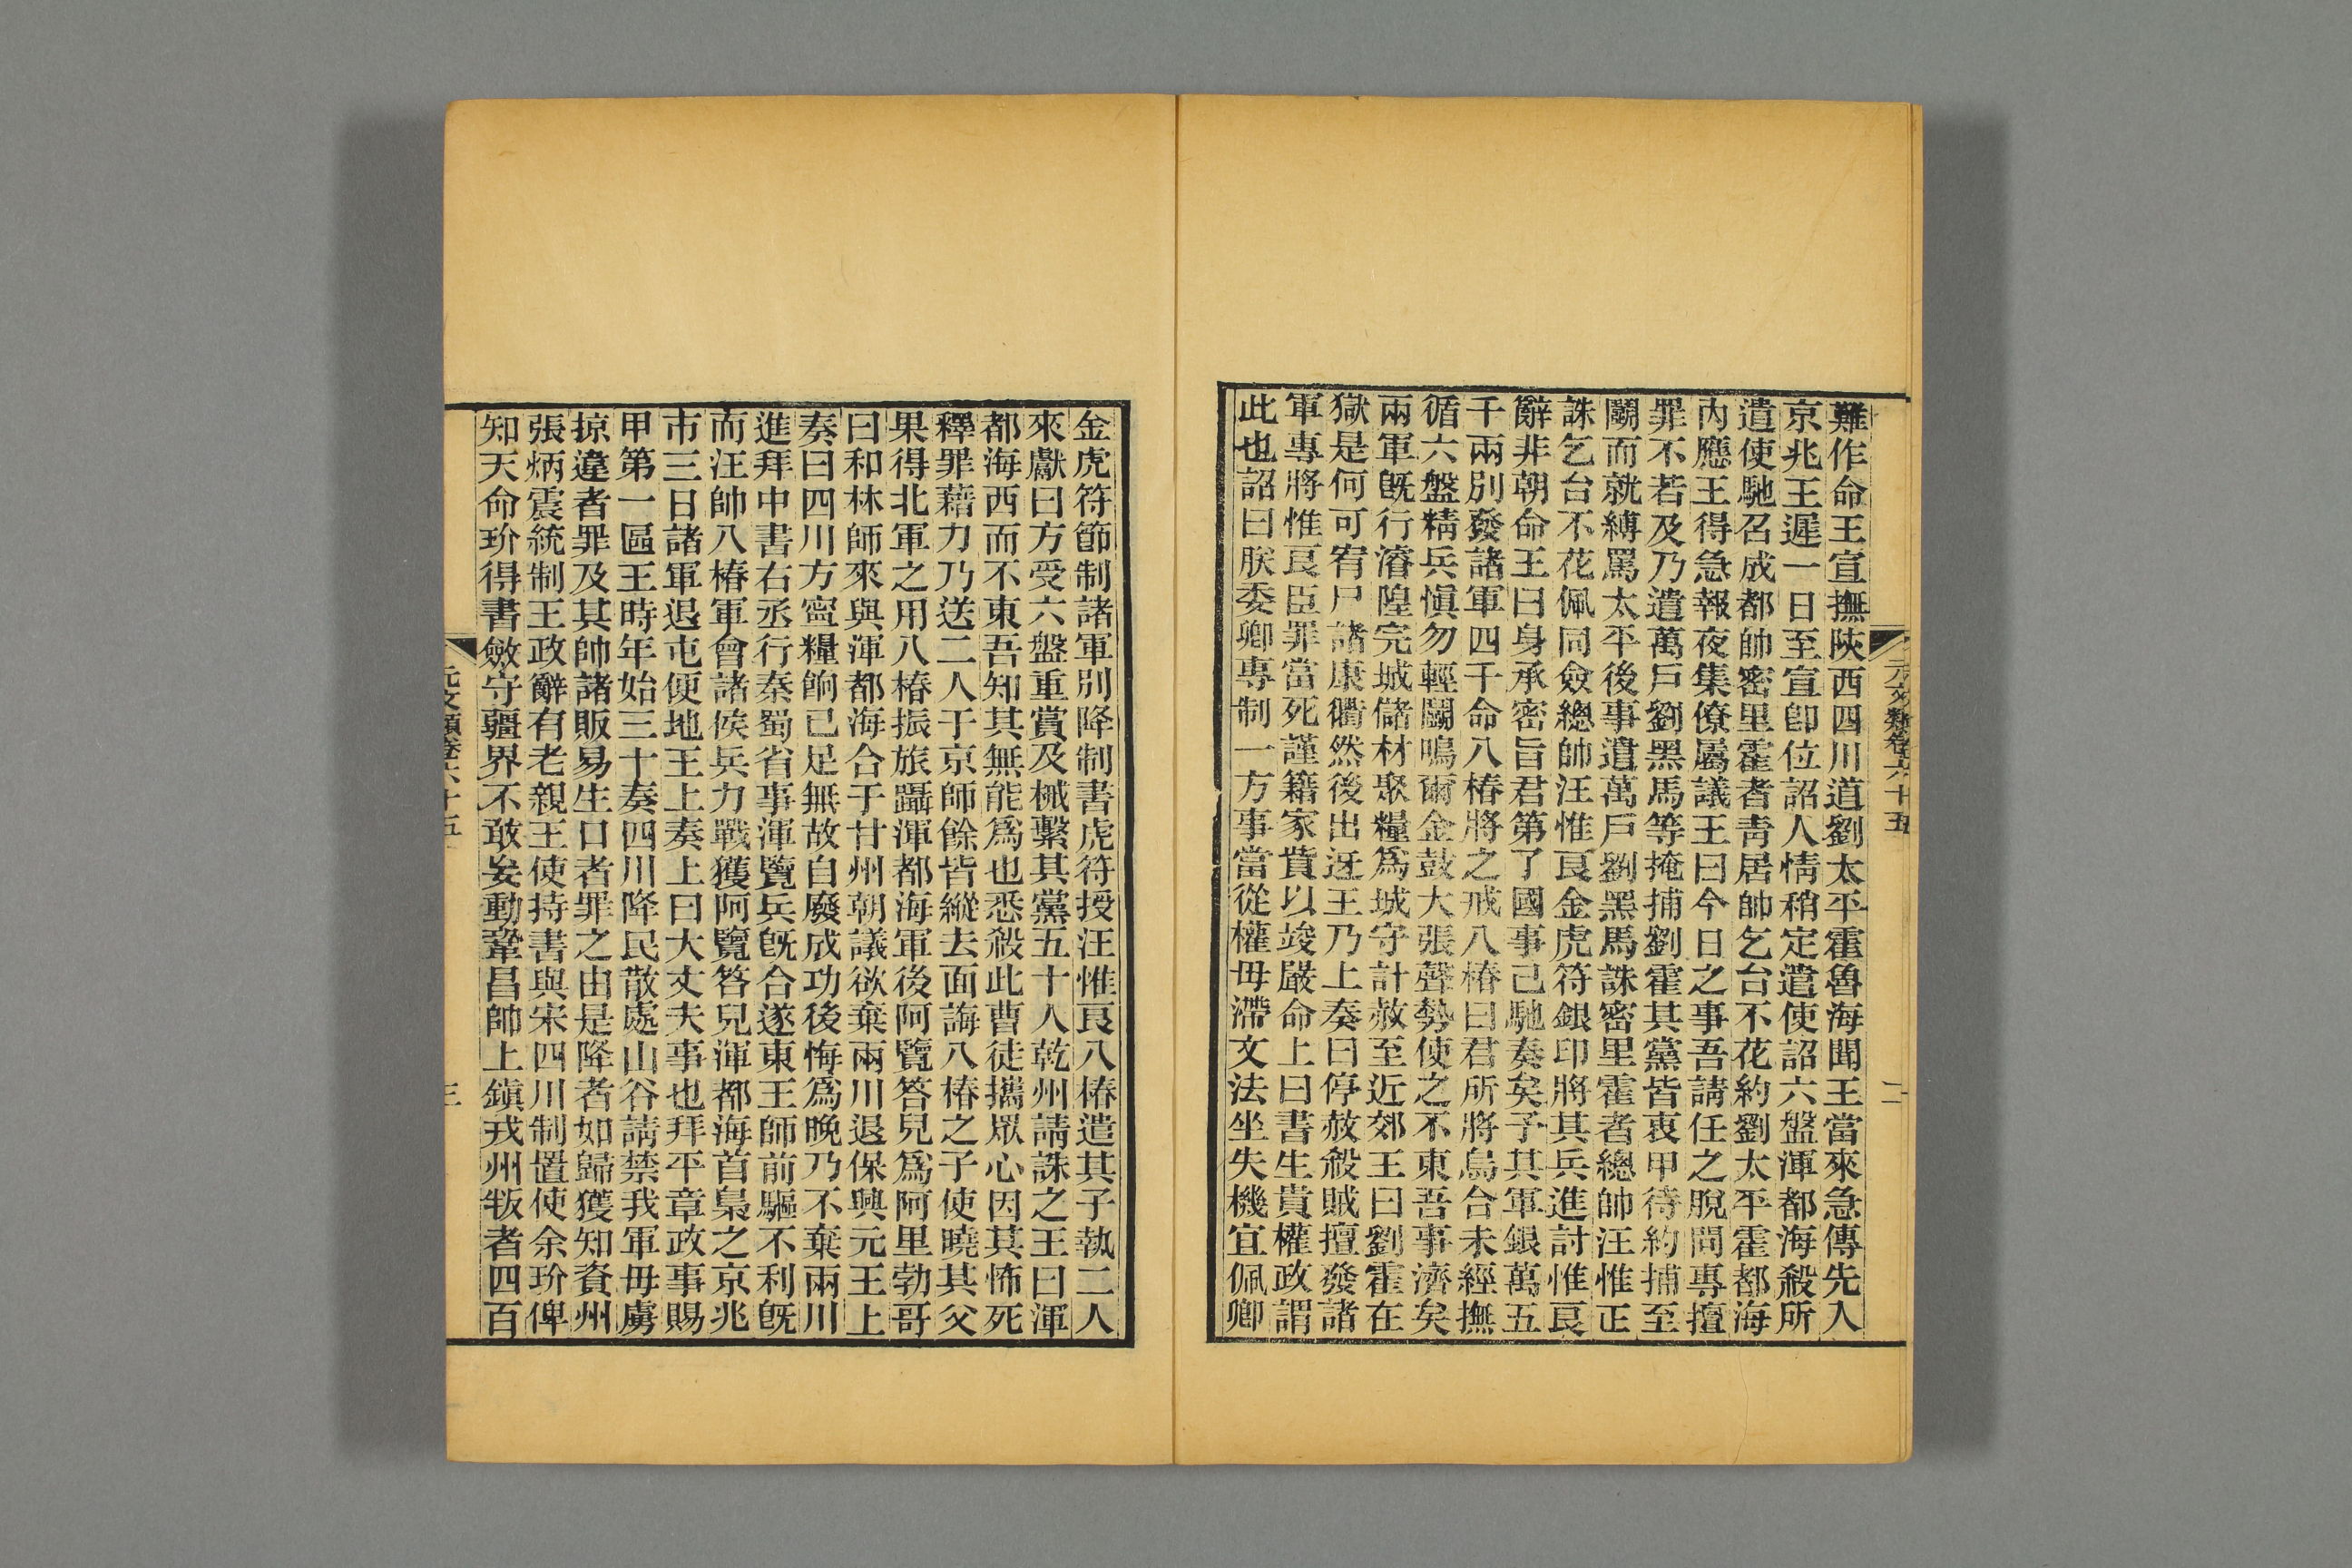 元文類卷六十五
二
難作命王宣撫陝西四川道劉太平霍魯海聞王當來急傳先入
京兆王遲一日至宣卽位詔人情稍定遣使詔六盤渾都海殺所
遣使馳召成都帥密里霍者靑居帥乞台不花約劉太平霍都海
內應王得急報夜集僚屬議王曰今日之事吾請任之脫問專擅
罪不若及乃遣萬戸劉黑馬等掩捕劉霍其黨皆衷甲待約捕至
闢而就縛罵太平後事遣萬戸劉黑馬誅密里霍者總帥汪惟正
誅乞台不花佩同僉總帥汪惟良金虎符銀印將其兵進討惟良
辭非朝命王曰身承密旨君第了國事已馳奏矣予其軍銀萬五
千兩別發諸軍四千命八椿將之戒八椿曰君所將烏合未經撫
循六盤精兵愼勿輕鬭鳴爾金鼓大張聲勢使之不東吾事濟矣
兩軍旣行濬隍完城儲材聚糧爲城守計赦至近郊王曰劉霍在
獄是何可宥尸諸康衢然後出迓王乃上奏曰停赦殺賊擅發諸
軍專將惟良臣罪當死謹籍家貲以竢嚴命上曰書生貴權政謂
此也詔曰朕委卿專制一方事當從權毋滯文法坐失機宜佩卿
金虎符節制諸軍別降制書虎符授汪惟良八椿遣其子執二人
來獻曰方受六盤重賞及械繫其黨五十人乾州請誅之王曰渾
都海西而不東吾知其無能爲也悉殺此曹徒攜眾心因其怖死
釋罪藉力乃送二人于京師餘皆縱去面誨八椿之子使曉其父
果得北軍之用八椿振旅躡渾都海軍後阿覽答兒爲阿里勃哥
曰和林師來與渾都海合于甘州朝議欲棄兩川退保興元王上
奏曰四川方寍糧餉已足無故自廢成功後悔爲晚乃不棄兩川
進拜中書右丞行秦蜀省事渾覽兵旣合遂東王師前驅不利旣
而汪帥八椿軍會諸侯兵力戰獲阿覽答兒渾都海首梟之京兆
市三日諸軍退屯便地王上奏上曰大丈夫事也拜平章政事賜
甲第一區王時年始三十奏四川降民散處山谷請禁我軍毋虜
掠違者罪及其帥諸販易生口者罪之由是降者如歸獲知資州
張炳震統制王政辭有老親王使持書與宋四川制置使余玠俾
知天命玠得書斂守疆界不敢妄動鞏昌帥上鎭戎州叛者四百
元文類卷六十五
三